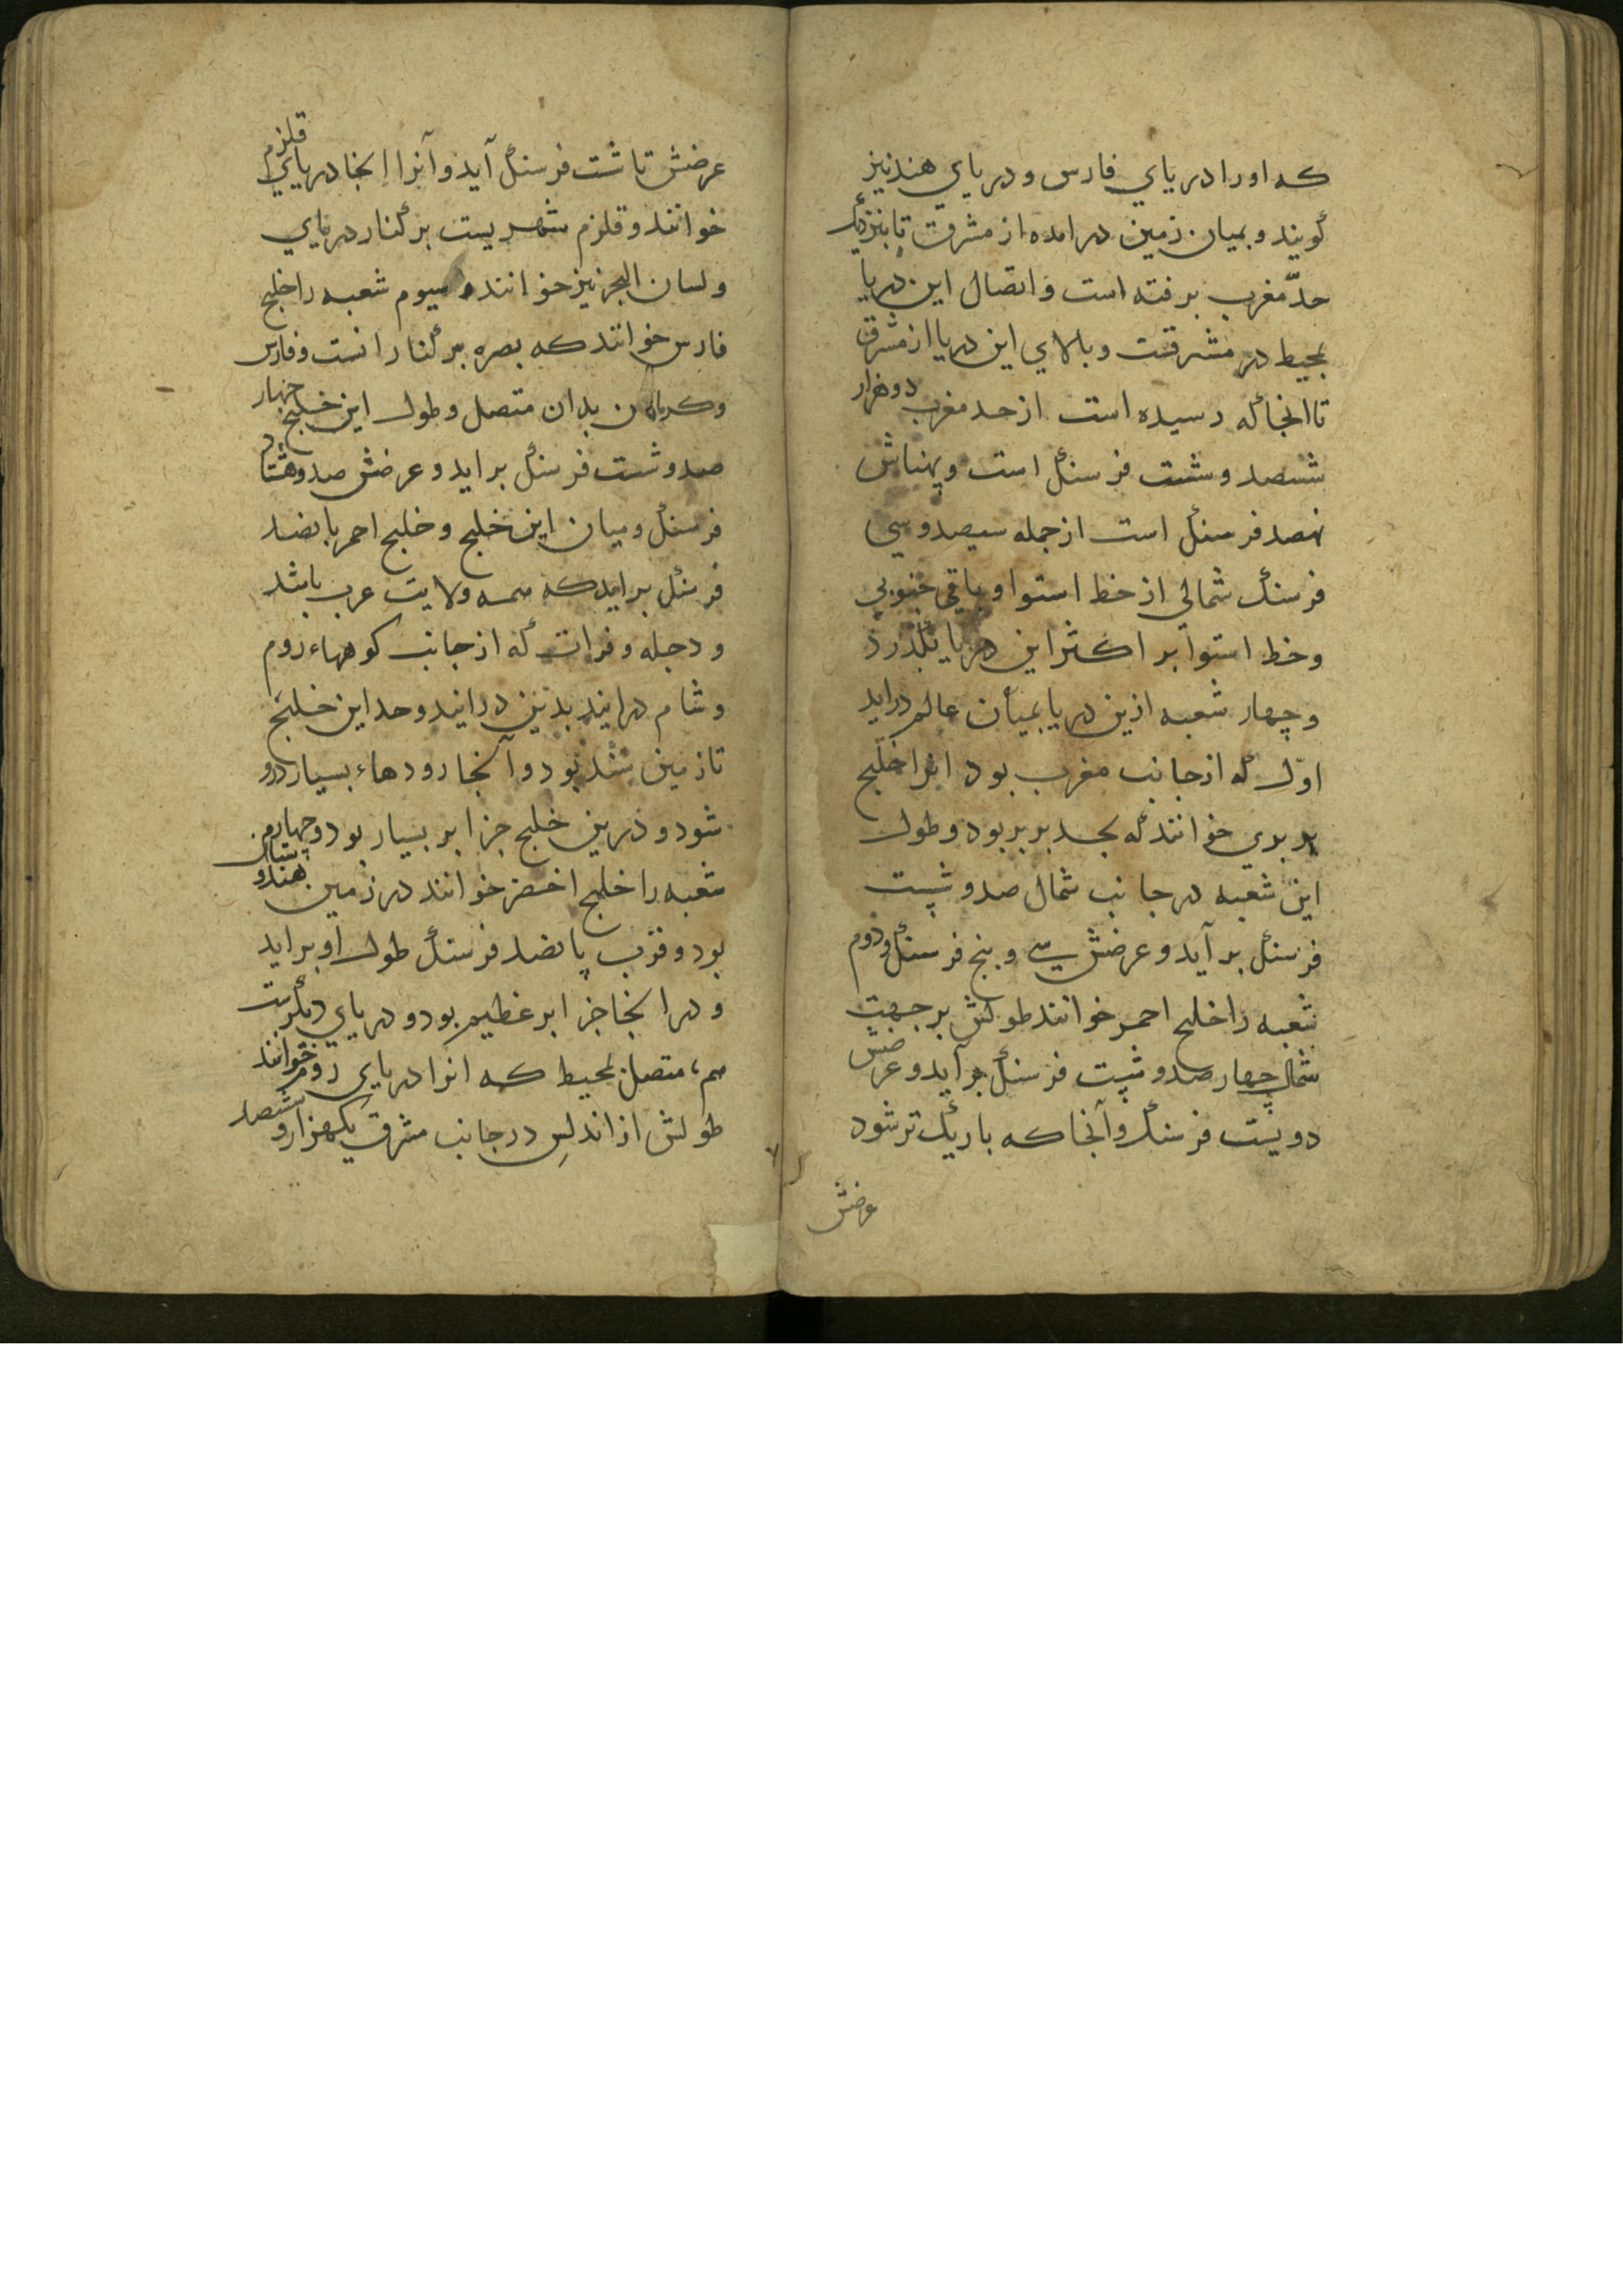 که اورا دریای فارس ودریای هند نیز
کویند وبمیان زمین درامده از مشرق تا بنزدیک
حدّ مغرب برفته است واتصال این دریا
بمحیط در مشرقت وبالای این دریا از مشرق
تا انجا که رسیده است از حد مغرب دوهزار
ششصد وشست فرسنک است وپهناش
نهصد فرسنک است از جمله سیصد وسی
فرسنک شمالی از خط استوا وباقی جنوبی
وخط استوا بر اکثر این دریا بکذرد
وچهار شعبه ازین دریا بمیان عالم دراید
اوّل که از جانب مغرب بود انرا خلیج
بربری خوانند که بحد بربر بود وطول
این شعبه در جانب شمال صد وشست
فرسنک برآید وعرضش سی وپنج فرسنک ودوم
شعبه را خلیج احمر خوانند طولش بر جهت
شمال چهار صد وشست فرسنک برآید وعرضش
دویست فرسنک وآنجا که باریک تر شود
عرضش
عرضش تا شست فرسنک آید وآنرا انجا دریای قلزم
خوانند وقلزم شهریست بر کنار دریای
ولسان البحر نیز خوانند وسیوم شعبه را خلیج
فارس خوانند که بصره بر کنار انست وفارس
وکرمان بدان متصل وطول این خلیج چهار
صد وشست فرسنک براید وعرضش صد وهشتاد
فرسنک ومیان این خلیج وخلیج احمر پانصد
فرسنک براید که همه ولایت عرب باشد
ودجله وفرات که از جانب کوههاء روم
وشام درایند بدین درایند وحد این خلیج
تا زمین سند بود وآنجا رودهاء بسیار درو
شود ودرین خلیج جزایر بسیار بود وچهارم
شعبه را خلیج اخضر خوانند در زمین هندوستان
بود وقرب پانصد فرسنک طول او براید
ودر انجا جزایر عظیم بود ودریای دیکرست
هم متصل بمحیط که انرا دریای روم خوانند
طولش از اندلس در جانب مشرق یکهزار وششصد